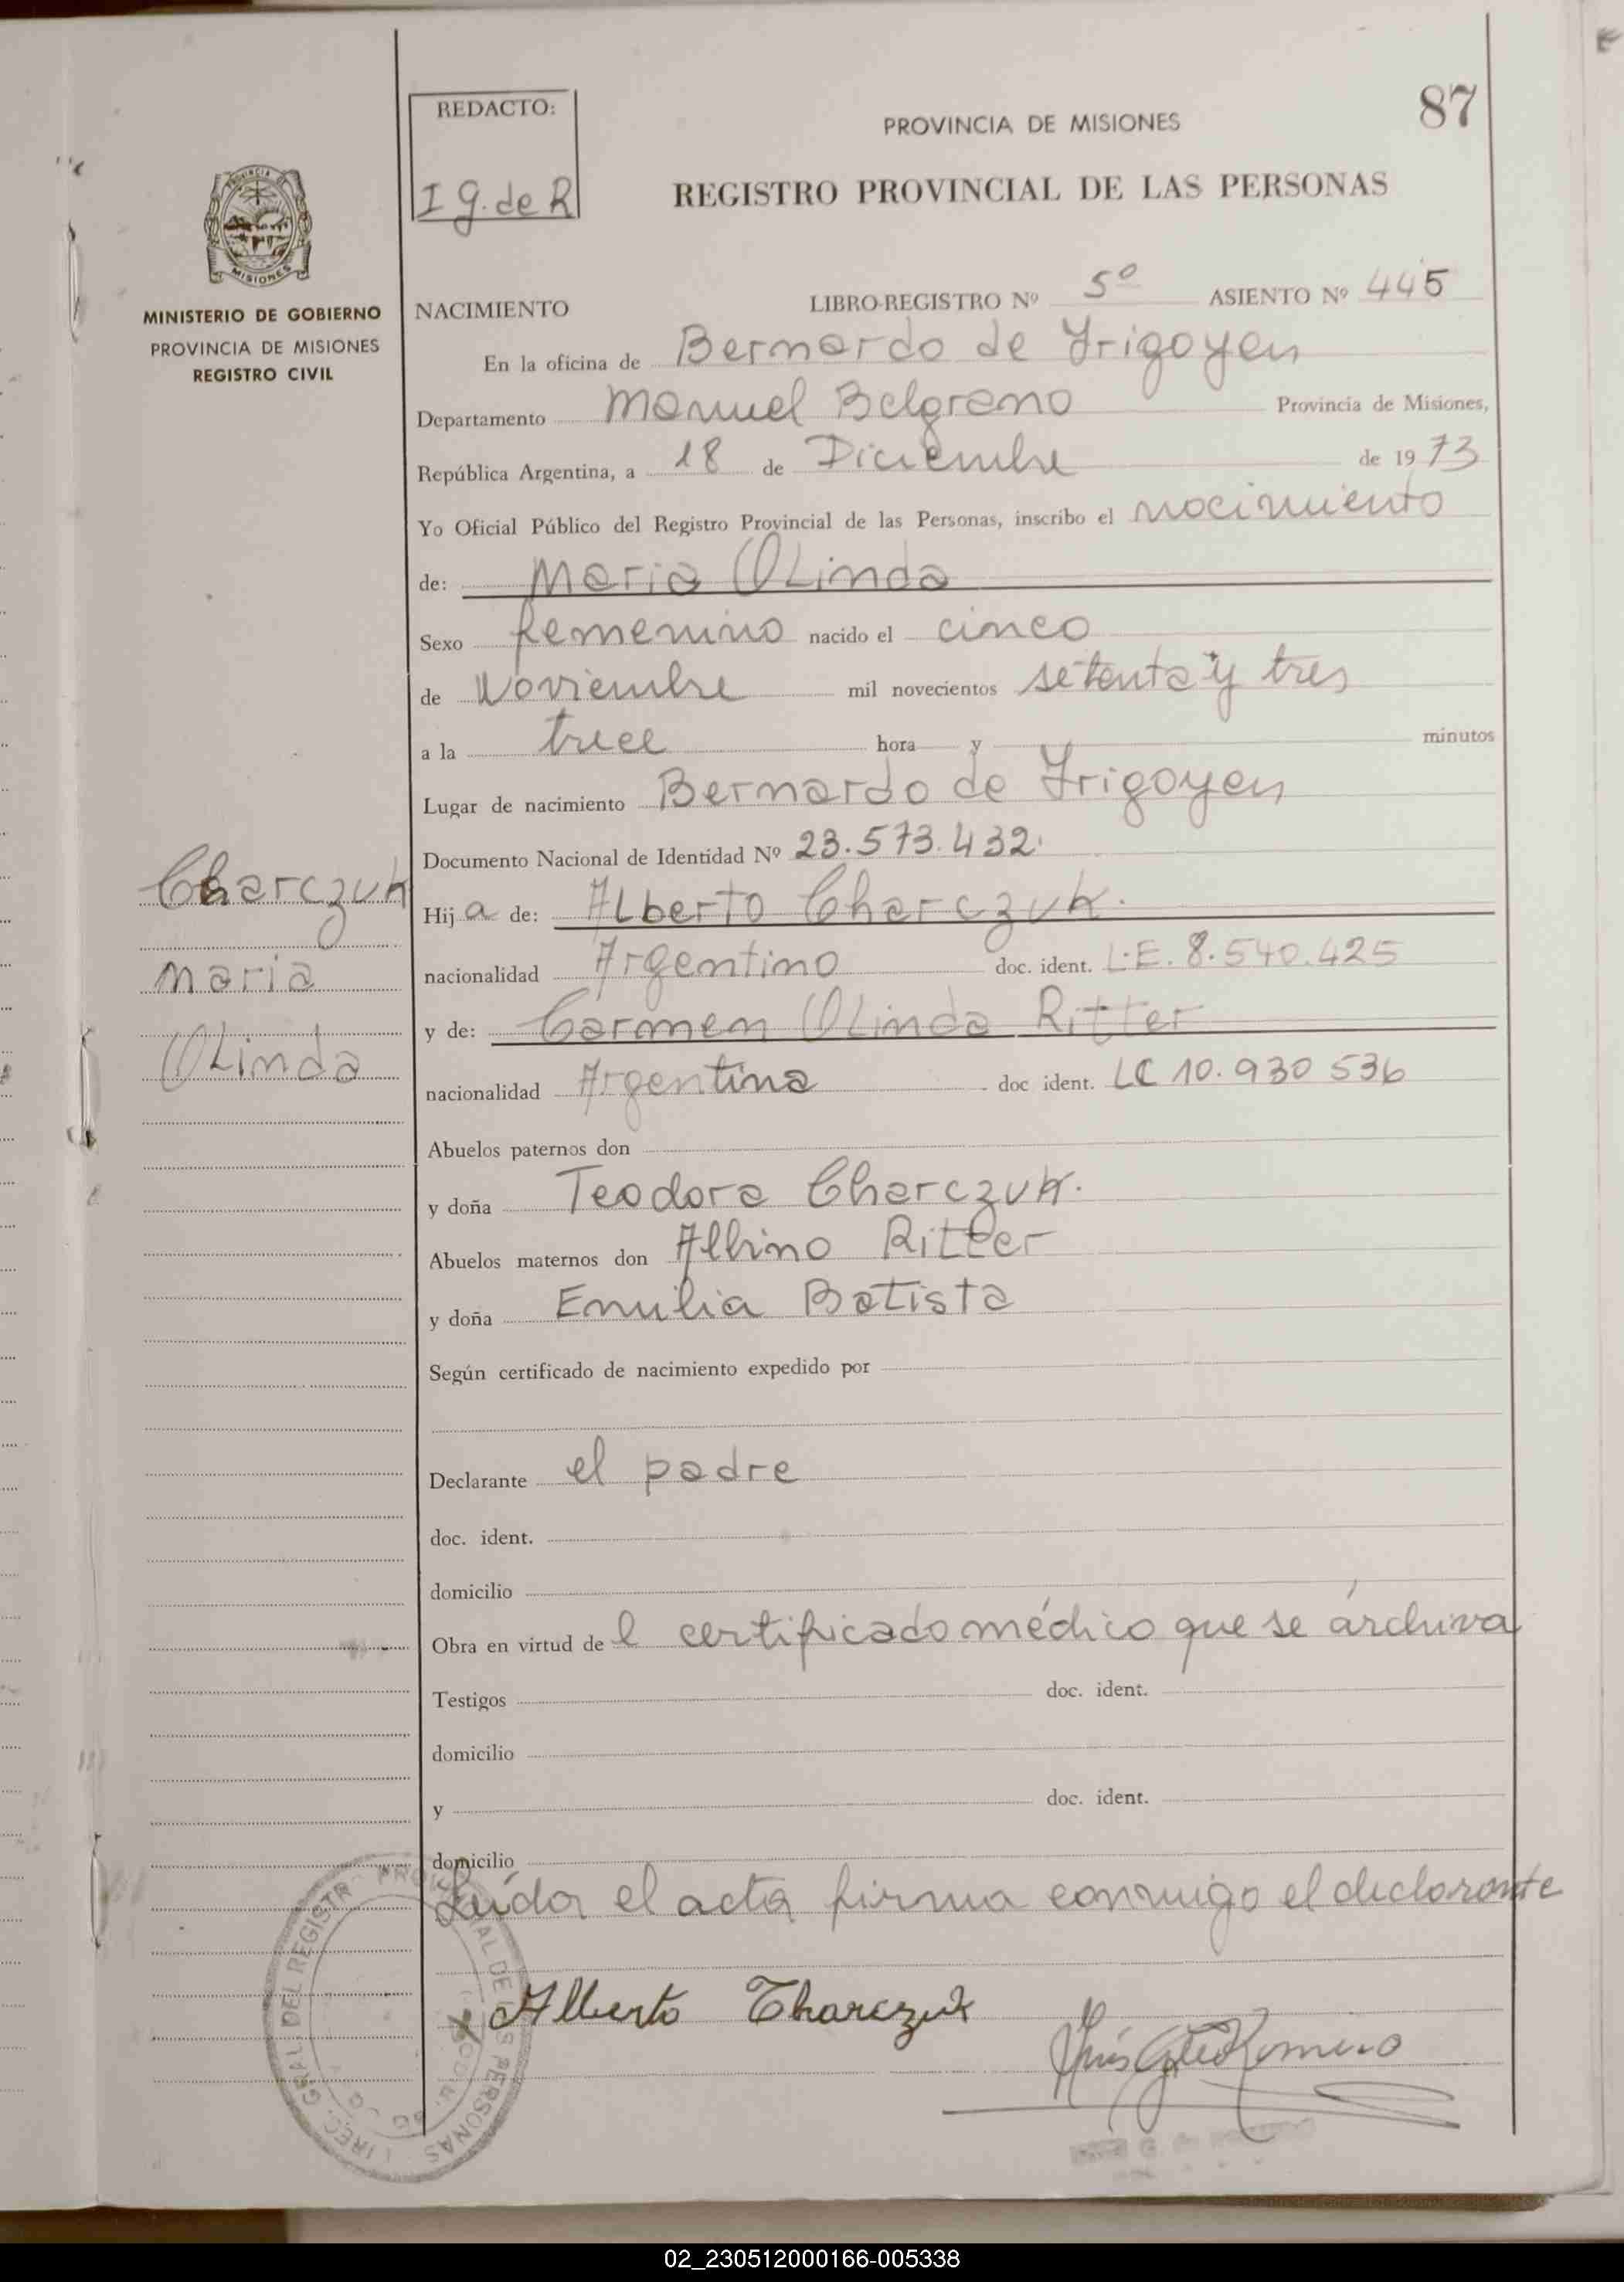 87
REDACTO:
I G. de R
PROVINCIA DE MISIONES
REGISTRO PROVINCIAL DE LAS PERSONAS
MISIONES
MINISTERIO DE GOBIERNO
PROVINCIA DE MISIONES
REGISTRO CIVIL
NACIMIENTO LIBRO-REGISTRO Nº 5º ASIENTO Nº 445
En la oficina de Bernardo de Irigoyen
Departamento Manuel Belgrano Provincia de Misiones,
República Argentina, a 18 de Diciembre de 1973
Yo Oficial Público del Registro Provincial de las Personas, inscribo el nacimiento
de: Maria Olinda
Sexo femenino nacido el cinco
de Noviembre mil novecientos setenta y tres
a la trece hora y minutos
Lugar de nacimiento Bernardo de Irigoyen
Documento Nacional de Identidad Nº 23.573.432.
Charczuk
Maria
Olinda
Hija de: Alberto Charczuk.
nacionalidad Argentino doc. ident. L.E. 8.540.425
y de: Carmen Olinda Ritter
nacionalidad Argentina doc ident. LC 10.930 536
Abuelos paternos don
y doña Teodora Charczuk.
Abuelos maternos don Albino Ritter
y doña Emilia Batista
Según certificado de nacimiento expedido por
Declarante el padre
doc. ident.
domicilio
Obra en virtud del certificado médico que se archiva
Testigos doc. ident.
domicilio
y doc. ident.
domicilio
Leída el acta firma conmigo el declarante
x Alberto Charczuk
Romero
GRAL. DEL REGISTR PROVINCIAL DE LAS PERSONAS
02_230512000166-005338